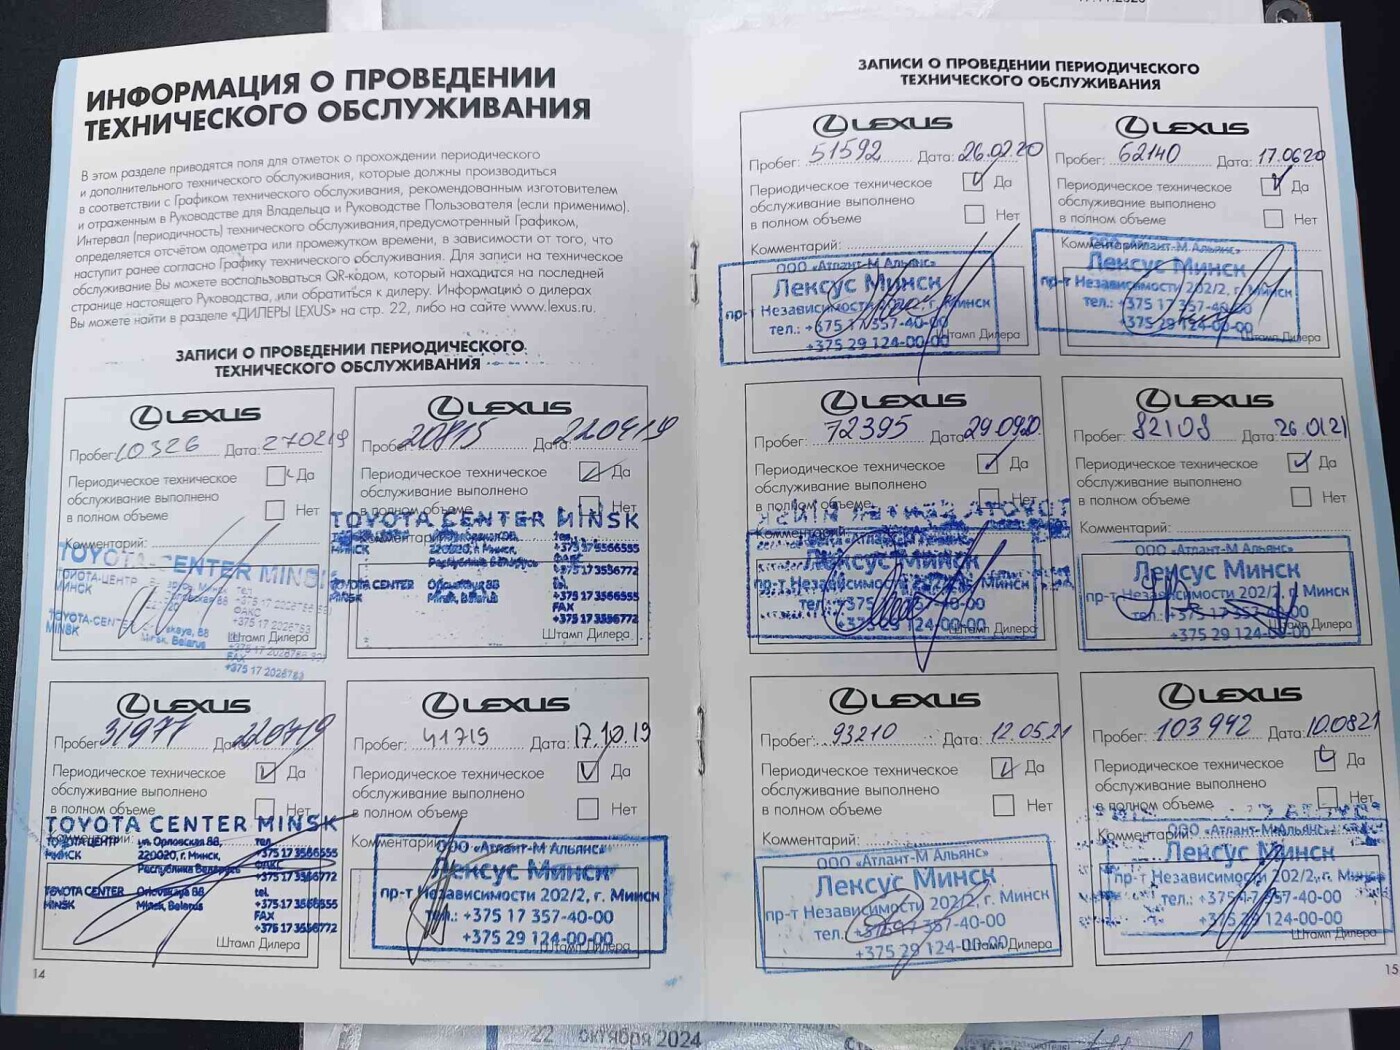 ИНФОРМАЦИЯ О ПРОВЕДЕНИИ
ТЕХНИЧЕСКОГО ОБСЛУЖИВАНИЯ
В этом разделе приводятся поля для отметок о прохождении периодического
и дополнительного технического обслуживания, которые должны производиться
в соответствии с Графиком технического обслуживания, рекомендованным изготовителем
и отраженным в Руководстве для Владельца и Руководстве Пользователя (если применимо).
Интервал (периодичность) технического обслуживания, предусмотренный Графиком,
определяется отсчётом одометра или промежутком времени, в зависимости от того, что
наступит ранее согласно Графику технического обслуживания. Для записи на техническое
обслуживание Вы можете воспользоваться QR-кодом, который находится на последней
странице настоящего Руководства, или обратиться к дилеру. Информацию о дилерах
Вы можете найти в разделе «ДИЛЕРЫ LEXUS» на стр. 22, либо на сайте www.lexus.ru.
ЗАПИСИ О ПРОВЕДЕНИИ ПЕРИОДИЧЕСКОГО
ТЕХНИЧЕСКОГО ОБСЛУЖИВАНИЯ
LEXUS
Пробег: 10326 Дата: 270219
Периодическое техническое
обслуживание выполнено
в полном объеме
Да
Нет
Комментарий:
TOYOTA CENTER MINSK
ТОЙОТА-ЦЕНТР
МИНСК
MINSK
Minsk, Belarus
ФАКС
FAX
Штамп Дилера
LEXUS
Пробег: 20815 Дата: 220419
Периодическое техническое
обслуживание выполнено
в полном объеме
Да
Нет
TOYOTA CENTER MINSK
МИНСК
220020, г. Минск,
Республика Беларусь
+375 17 3566555
+375 17 3566772
TOYOTA CENTER
MINSK
Orlovskaya 88
Minsk, Belarus
tel.
+375 17 3566555
FAX
+375 17 3566772
Штамп Дилера
LEXUS
Пробег: 31977 Дата: 220719
Периодическое техническое
обслуживание выполнено
в полном объеме
Да
Нет
TOYOTA CENTER MINSK
ТОЙОТА ЦЕНТР
МИНСК
ул. Орловская 88,
220020, г. Минск,
Республика Беларусь
тел.
+375 17 3566555
+375 17 3566772
TOYOTA CENTER
MINSK
Orlovskaya 88
Minsk, Belarus
tel.
+375 17 3566555
FAX
+375 17 3566772
Штамп Дилера
LEXUS
Пробег: 41719 Дата: 17.10.19
Периодическое техническое
обслуживание выполнено
в полном объеме
Да
Нет
Комментарий:
ООО «Атлант-М Альянс»
Лексус Минск
пр-т Независимости 202/2, г. Минск
тел.: +375 17 357-40-00
+375 29 124-00-00
Штамп Дилера
14
ЗАПИСИ О ПРОВЕДЕНИИ ПЕРИОДИЧЕСКОГО
ТЕХНИЧЕСКОГО ОБСЛУЖИВАНИЯ
LEXUS
Пробег: 51592 Дата: 26.02.20
Периодическое техническое
обслуживание выполнено
в полном объеме
Да
Нет
Комментарий:
ООО «Атлант-М Альянс»
Лексус Минск
пр-т Независимости 202/2, г. Минск
тел.: +375 17 357-40-00
+375 29 124-00-00
Штамп Дилера
LEXUS
Пробег: 62140 Дата: 17.0620
Периодическое техническое
обслуживание выполнено
в полном объеме
Да
Нет
Комментарий:
Лексус Минск
пр-т Независимости 202/2, г. Минск
тел.: +375 17 357-40-00
+375 29 124-00-00
Штамп Дилера
LEXUS
Пробег: 72395 Дата: 29.0920
Периодическое техническое
обслуживание выполнено
в полном объеме
Да
Нет
Комментарий:
Лексус Минск
пр-т Независимости 202/2, г. Минск
тел.: +375 17 357-40-00
+375 29 124-00-00
Штамп Дилера
LEXUS
Пробег: 82108 Дата: 26.0121
Периодическое техническое
обслуживание выполнено
в полном объеме
Да
Нет
Комментарий:
ООО «Атлант-М Альянс»
Лексус Минск
пр-т Независимости 202/2, г. Минск
тел.: +375 17 357-40-00
+375 29 124-00-00
Штамп Дилера
LEXUS
Пробег: 93210 Дата: 12.05.21
Периодическое техническое
обслуживание выполнено
в полном объеме
Да
Нет
Комментарий:
ООО «Атлант-М Альянс»
Лексус Минск
пр-т Независимости 202/2, г. Минск
тел.: +375 17 357-40-00
+375 29 124-00-00
Штамп Дилера
LEXUS
Пробег: 103992 Дата: 10.0821
Периодическое техническое
обслуживание выполнено
в полном объеме
Да
Нет
Комментарий:
ООО «Атлант-М Альянс»
Лексус Минск
пр-т Независимости 202/2, г. Минск
тел.: +375 17 357-40-00
+375 29 124-00-00
Штамп Дилера
15
22 октября 2024